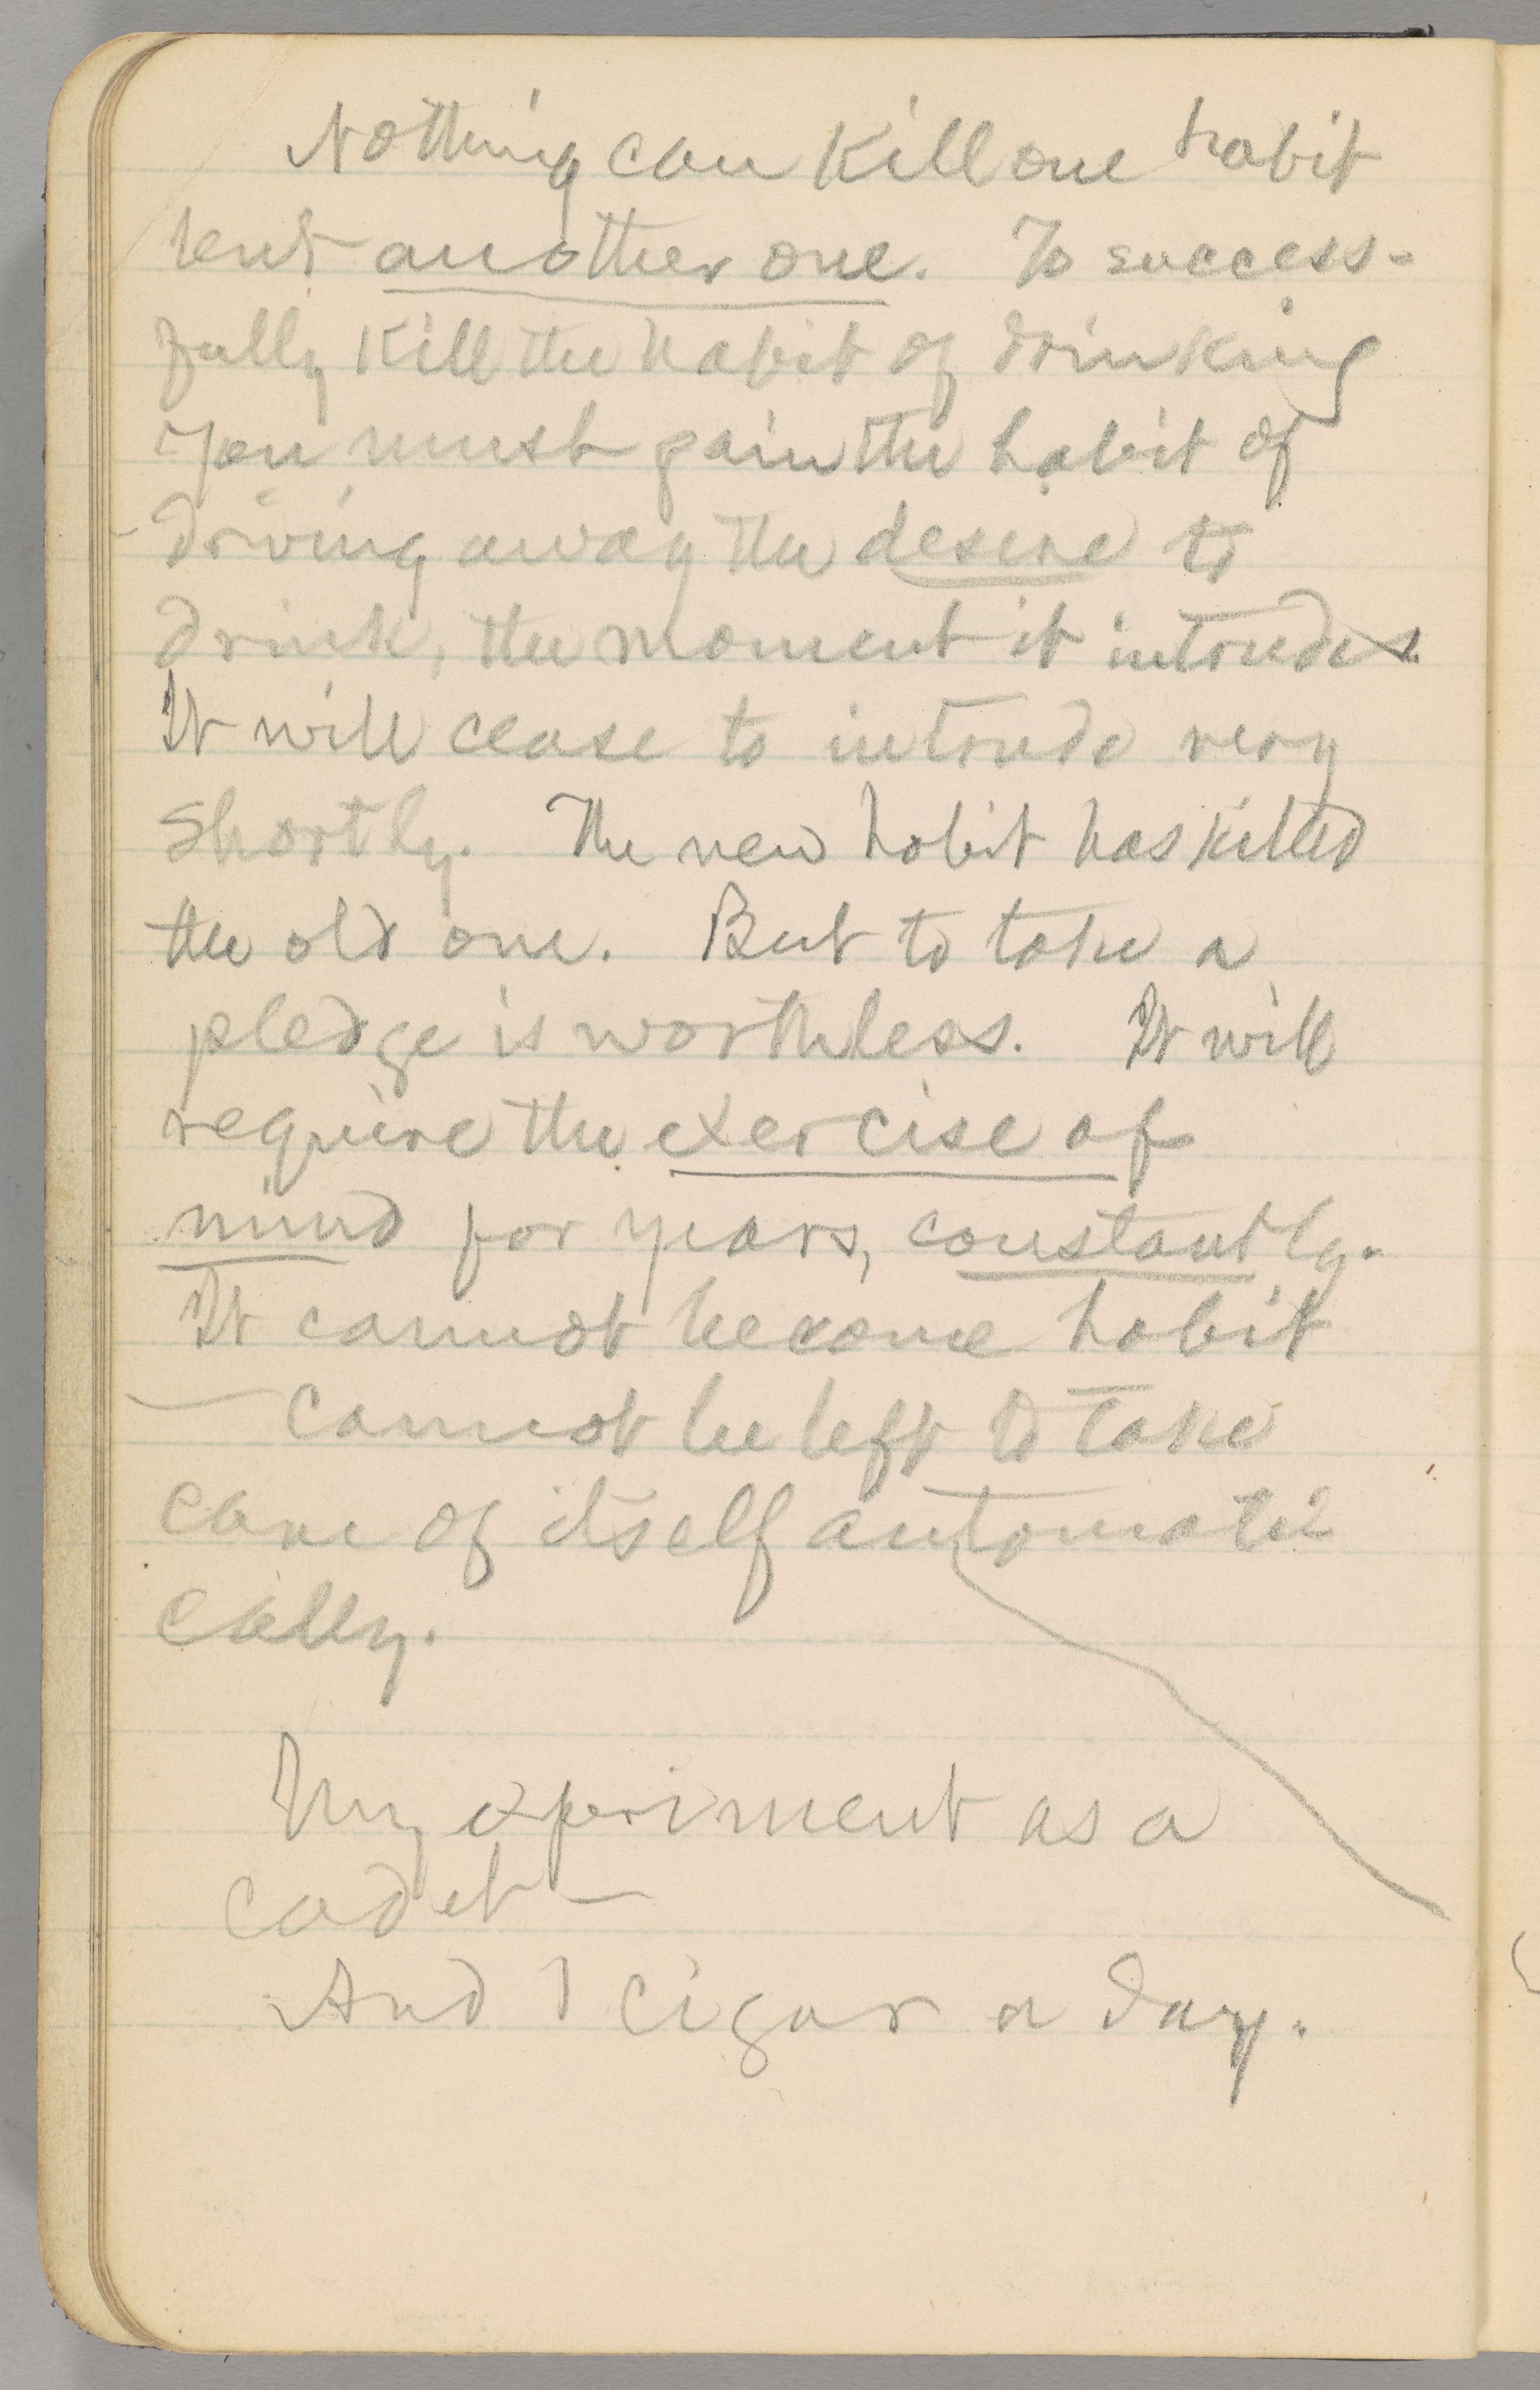 Nothing can kill one habit
but another one. To success-
fully kill the habit of drinking
you must gain the habit of
driving away the desire to
drink, the moment it intrudes.
It will cease to intrude very
shortly. The new habit has killed
the old one. But to take a
pledge is worthless. It will
require the exercise of
mind for years, constantly.
It cannot become habit
— cannot be left to take
care of itself automati-
cally.
My experiment as a
cadet —
And 1 cigar a day.